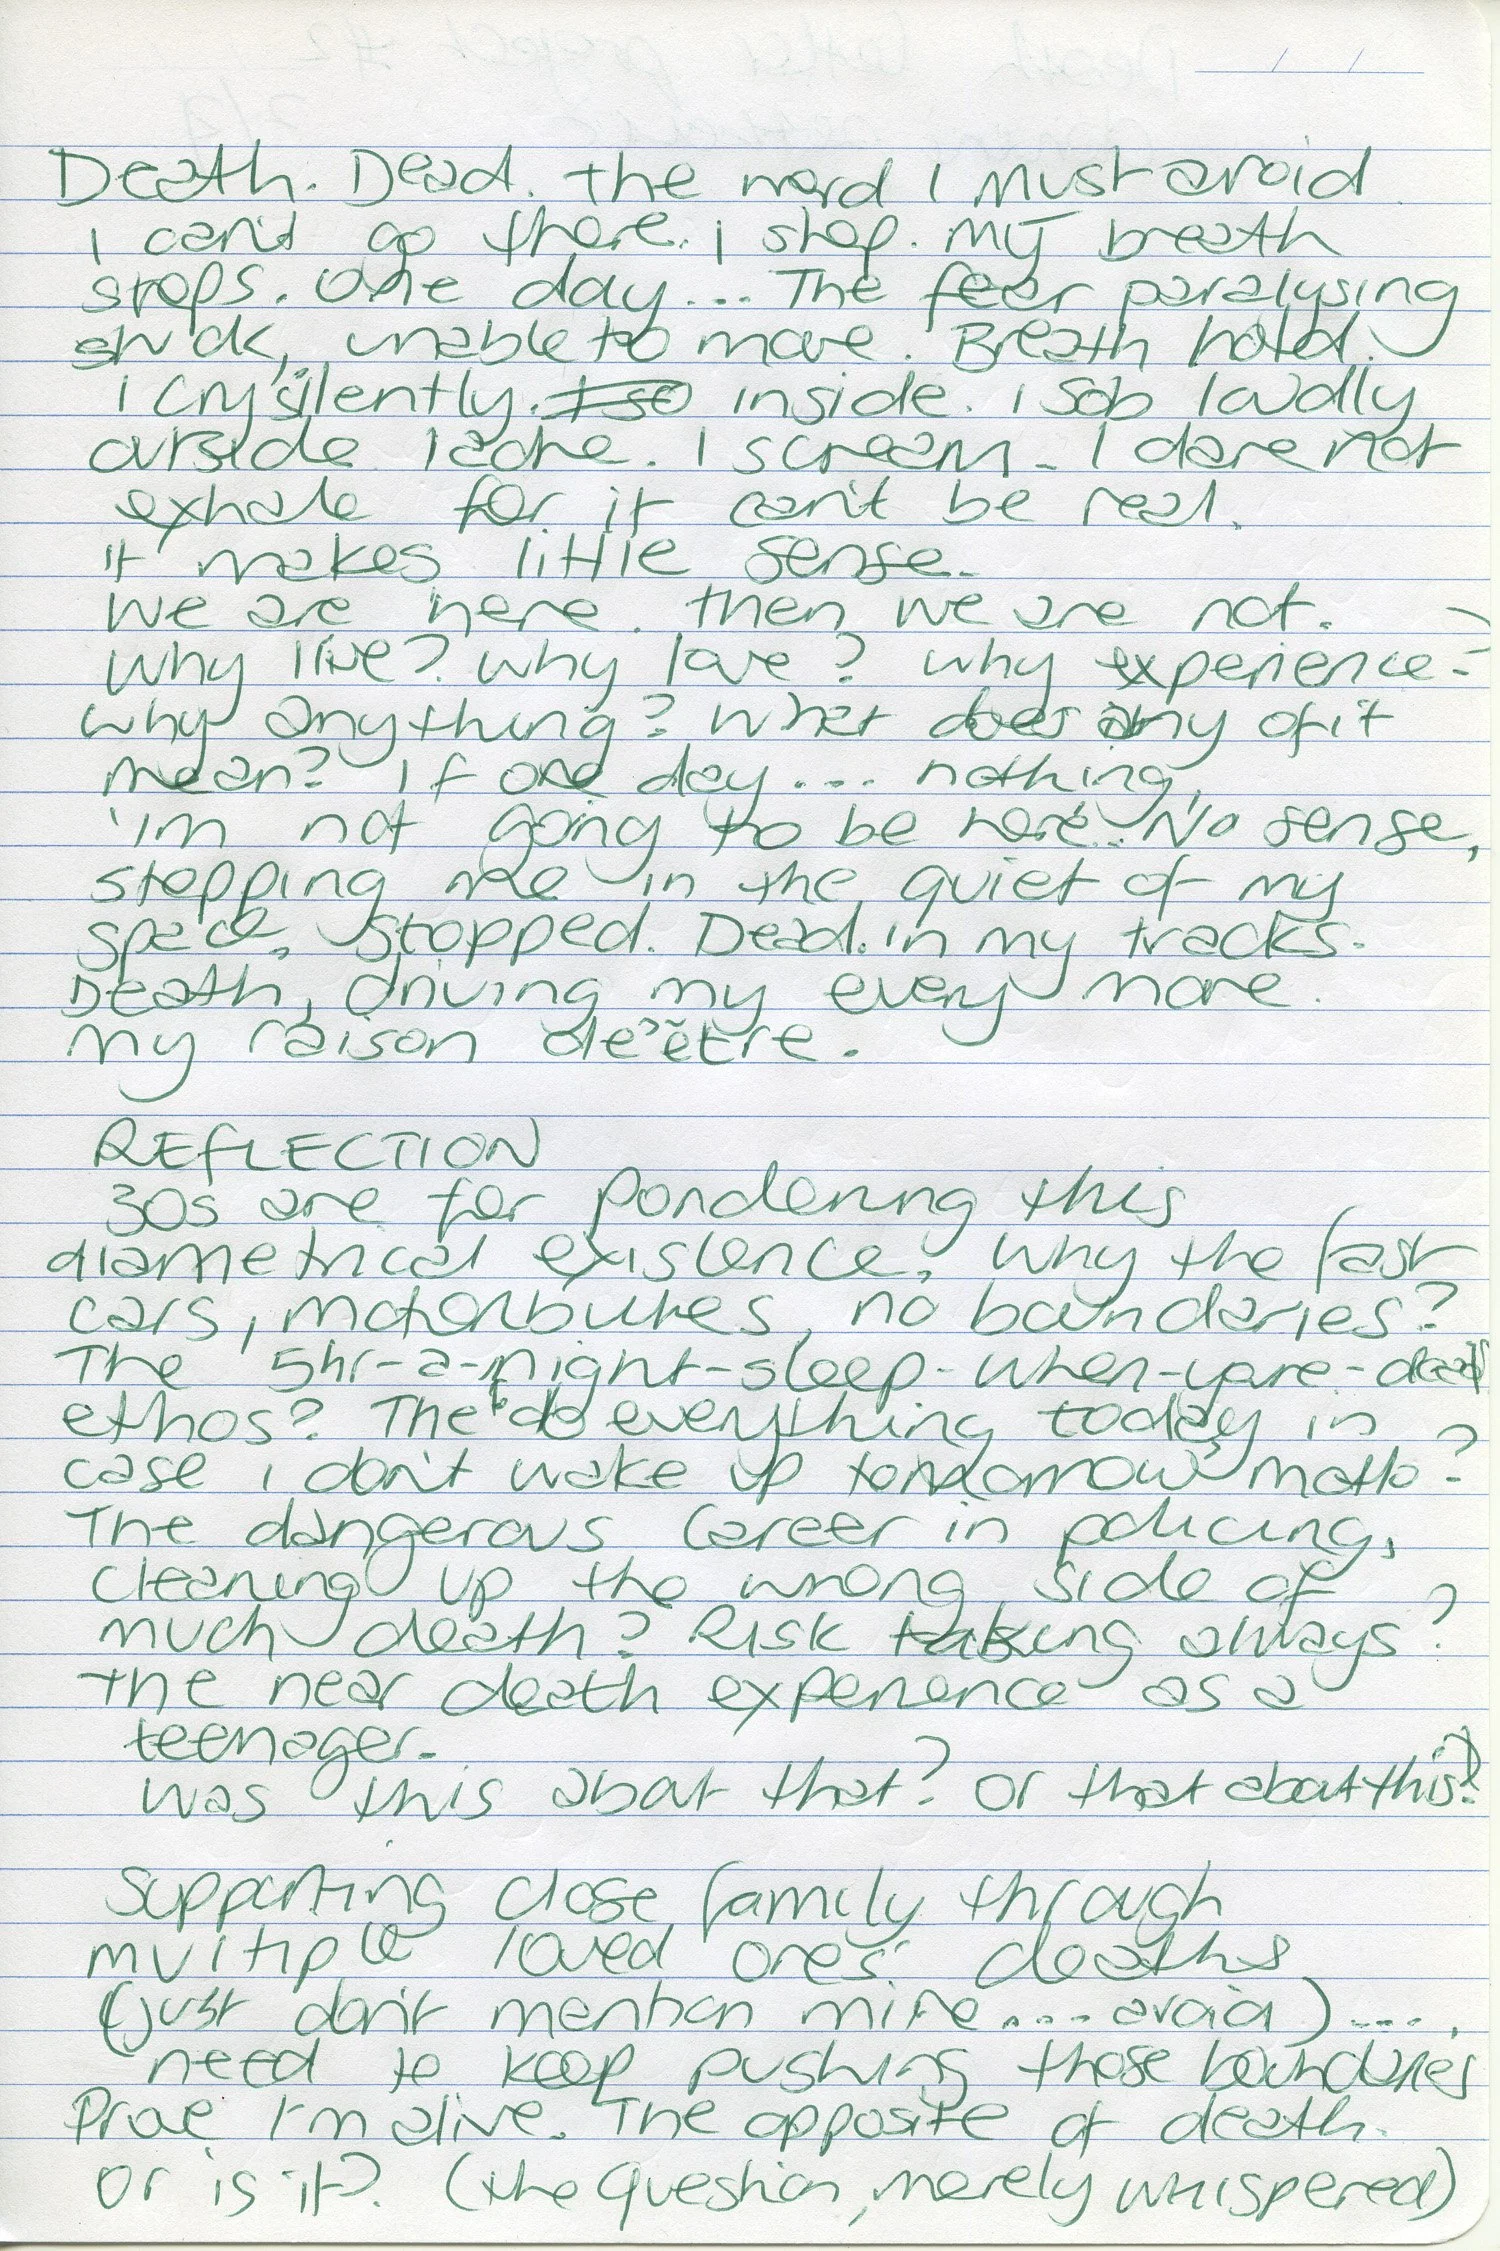 Death. Dead. The word I must avoid
I can't go there. I stop. My breath
stops. One day... The fear paralysing
stuck, unable to move. Breath held.
I cry silently. inside. I sob loudly
outside I ache. I scream. I dare not
exhale for it can't be real.
It makes little sense.
We are here. then we are not.
Why live? Why love? Why experience?
Why anything? What does any of it
mean? If one day.... nothing,
I'm not going to be here... No sense,
stopping me in the quiet of my
space. Stopped. Dead. in my tracks.
Death, driving my every move.
My raison de'être.
REFLECTION
30s are for pondering this
diametrical existence. Why the fast
cars, motorbikes, no boundaries?
The 5hr-a-night-sleep-when-youre-dead
ethos? The 'do everything today in
case I don't wake up tomorrow' motto?
The dangerous career in policing,
cleaning up the wrong side of
much death? Risk taking always?
The near death experience as a
teenager.
Was this about that? Or that about this?
Supporting close family through
multiple loved ones' deaths
(just don't mention mine.... avoid)....
need to keep pushing those boundaries
Prove I'm alive. The opposite of death.
Or is it? (the question, merely whispered)